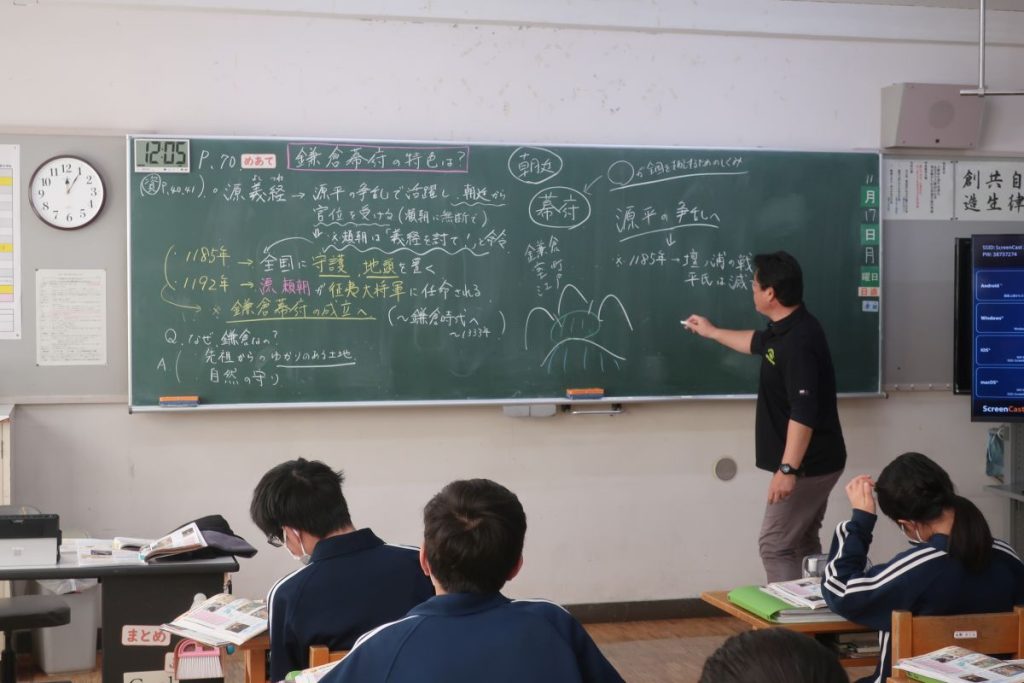 12:05
P.70 めあて 鎌倉幕府の特色は?
資P.40,41
源義経→源平の争乱で活躍し、朝廷から
官位を受ける(頼朝に無断で)
※頼朝は「義経を討て!」と命令
・1185年→全国に守護、地頭を置く
・1192年→源頼朝が征夷大将軍に任命される
※鎌倉幕府の成立へ
(〜鎌倉時代へ
〜1333年)
Q.なぜ、鎌倉なの?
A.(先祖からのゆかりのある土地
自然の守り
朝廷
幕府
鎌倉
室町
江戸
源平の争乱へ
※1185年→壇ノ浦の戦
平氏は滅
11
月
17
日
月
曜日
日直
自律
共生
創造
まとめ
SSID: ScreenCast
PIN: 38737274
Android
Windows
iOS
macOS
ScreenCast